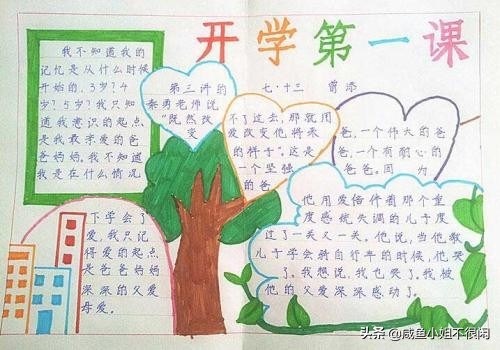 开学第一课
七·十三 曾添
我不知道我的
记忆是从什么时候
开始的,3岁?4
岁?5岁?我只知
道我意识的起点
是我最亲爱的爸
爸妈妈,我不知道
我是在什么情况
下学会了
爱,我只记
得爱的起点
是爸爸妈妈
深深的父爱
母爱。
第三讲的
秦勇老师说
"既然改
变
不了过去,那就用
爱改变他将来
的样子"。这是
一个坚强
的爸
爸,一个伟大的爸
爸,一个有耐心的
爸爸。因 为
他用爱陪伴着那个重
度感统失调的儿子度
过了一关又一关。他说,当他教
儿子学会骑自行车的时候,他哭
了。我想说,我也哭了。我被
他的父爱深深感动了。
头条 @咸鱼小姐不很闲